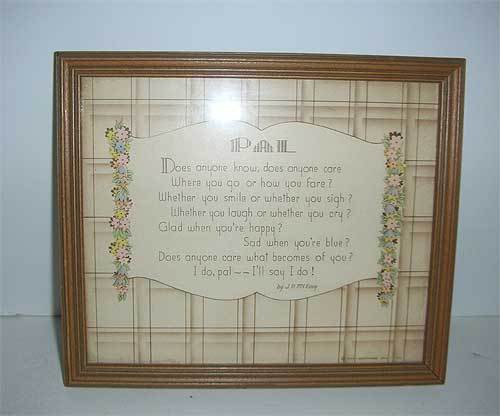 PAL
Does anyone know, does anyone care
Where you go or how you fare?
Whether you smile or whether you sigh?
Whether you laugh or whether you cry?
Glad when you're happy?
Sad when you're blue?
Does anyone care what becomes of you?
I do, pal -- I'll say I do!
by J. P.